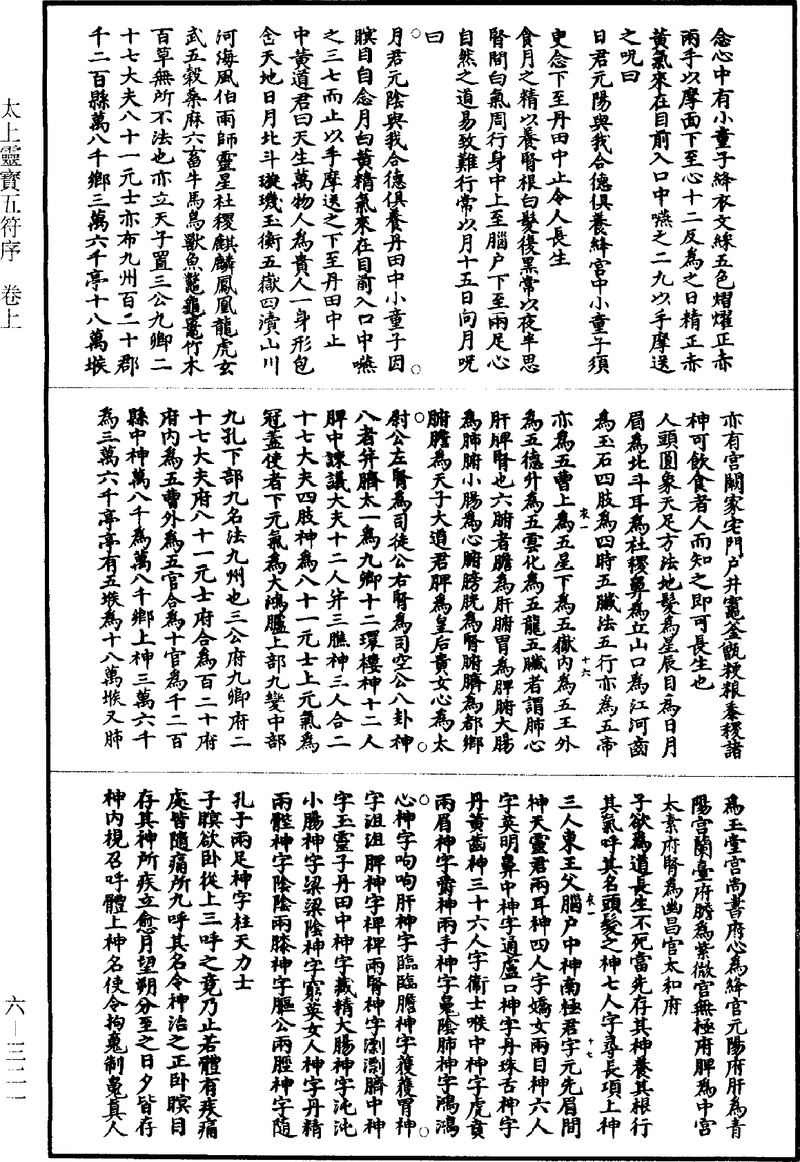 太上靈寶五符序　卷上
六—三二一
念心中有小童子絳衣文綵五色熠燿正赤
兩手以摩面下至心十二反為之日精正赤
黃氣來在目前入口中嚥之二九以手摩送
之呪曰
日君元陽與我合德俱養絳宮中小童子須
臾念下至丹田中止令人長生
食月之精以養腎根白髮復黑常以夜半思
腎間白氣周行身中上至腦戶下至兩足心
自然之道易致難行常以月十五日向月呪
曰
月君元陰與我合德俱養丹田中小童子因
瞑目自念月白黃精氣來在目前入口中嚥
之三七而止以手摩送之下至丹田中止
中黃道君曰天生萬物人為貴人一身形包
含天地日月北斗璇璣玉衡五嶽四瀆山川
河海風伯雨師靈星社稷麒麟鳳凰龍虎玄
武五穀桑麻六畜牛馬鳥獸魚鼈龜鼉竹木
百草無所不法也亦立天子置三公九卿二
十七大夫八十一元士亦布九州百二十郡
千二百縣萬八千鄉三萬六千亭十八萬堠
亦有宮闕家宅門戶井竈釜甑粳粮黍稷諸
神可飲食者人而知之即可長生也
人頭圓象天足方法地髮為星辰目為日月
眉為北斗耳為社稷鼻為丘山口為江河齒
為玉石四肢為四時五臟法五行亦為五帝
亦為五曹上為五星下為五嶽內為五王外
為五德升為五雲化為五龍五臟者謂肺心
肝脾腎也六腑者膽為肝腑胃為脾腑大腸
為肺腑小腸為心腑膀胱為腎腑臍為都鄉
腑膽為天子大道君脾為皇后貴女心為太
尉公左腎為司徒公右腎為司空公八卦神
八者并臍太一為九卿十二環樓神十二人
脾中諫議大夫十二人并三膲神三人合二
十七大夫四肢神為八十一元士上元氣為
冠蓋使者下元氣為大鴻臚上部九變中部
九孔下部九名法九州也三公府九卿府二
十七大夫府八十一元士府合為百二十府
府內為五曹外為五官合為十官為千二百
縣中神萬八千為萬八千鄉上神三萬六千
為三萬六千亭亭有五堠為十八萬堠又肺
為玉堂宮尚書府心為絳宮元陽府肝為青
陽宮蘭臺府膽為紫微宮無極府脾為中宮
太素府腎為幽昌宮太和府
子欲為道長生不死當先存其神養其根行
其氣呼其名頭髮之神七人字尋長項上神
三人東王父腦戶中神南極君字元先眉間
神天靈君兩耳神四人字嬌女兩目神六人
字英明鼻中神字通盧口神字丹珠舌神字
丹黃齒神三十六人字衛士喉中神字虎賁
兩眉神字嘗神兩手神字魄陰肺神字鴻鴻
心神字呴呴肝神字臨臨膽神字獲獲胃神
字沮沮脾神字裨裨兩腎神字㴽㴽臍中神
字玉靈子丹田中神字藏精大腸神字沌沌
小腸神字梁梁陰神字窮英女人神字丹精
兩髀神字陰陰兩膝神字樞公兩脛神字隨
孔子兩足神字柱天力士
子瞑欲臥從上三呼之竟乃止若體有疾痛
處皆隨痛所九呼其名令神治之正臥瞑目
存其神所疾立愈月望朔分至之日夕皆存
神內視召呼體上神名使令拘魂制魄真人
衣一
十六
衣一
十七